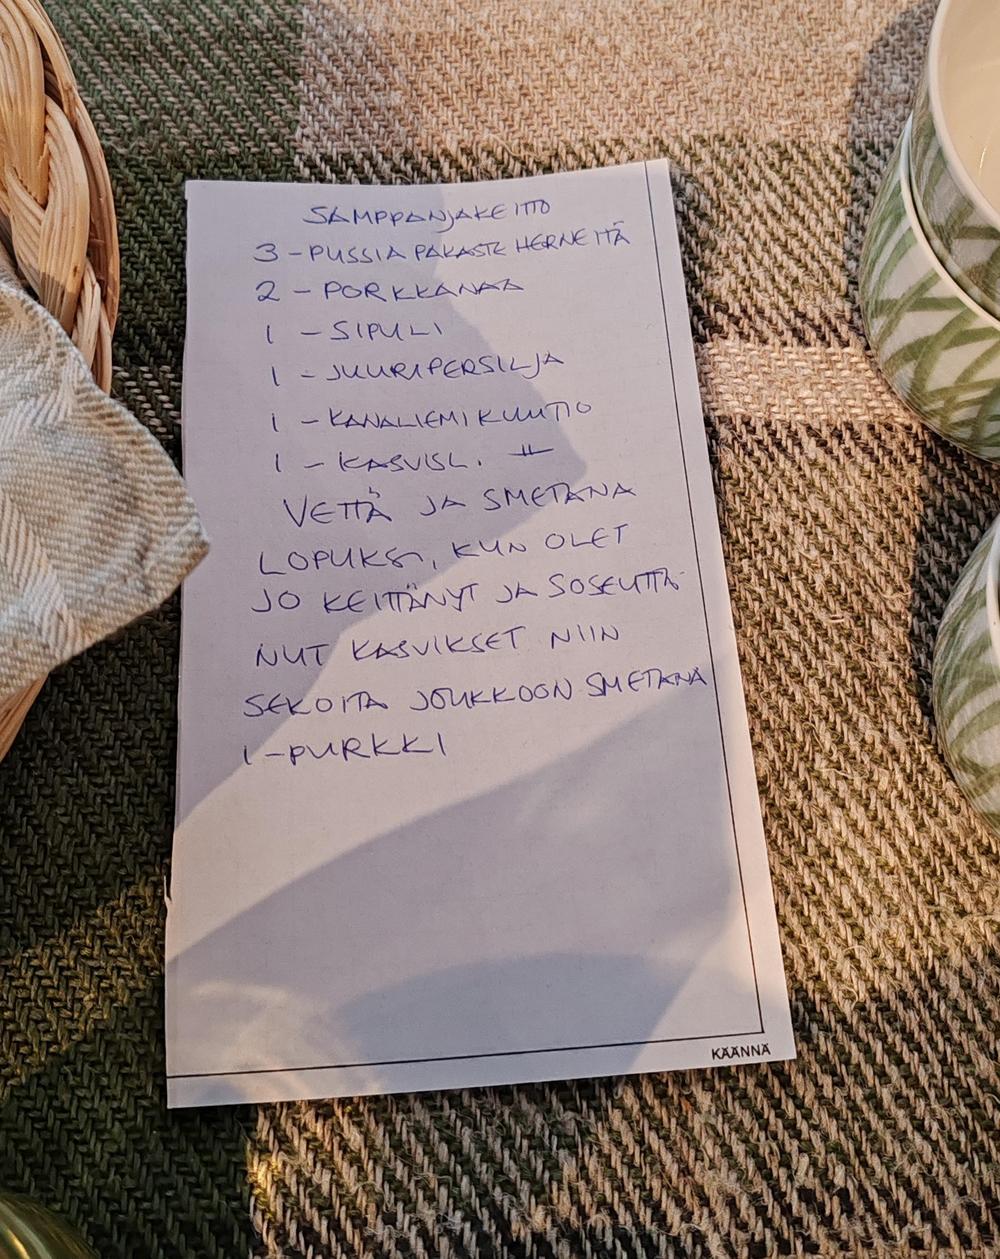 SAMPPANJAKEITTO
3 - PUSSIA PAKASTE HERNEITÄ
2 - PORKKANAA
1 - SIPULI
1 - JUURIPERSILJA
1 - KANALIEMIKUUTIO
1 - KASVISL. -||-
VETTÄ JA SMETANA
LOPUKSI, KUN OLET
JO KEITTÄNYT JA SOSEUTTA-
NUT KASVIKSET NIIN
SEKOITA JOUKKOON SMETANA
1 - PURKKI
KÄÄNNÄ